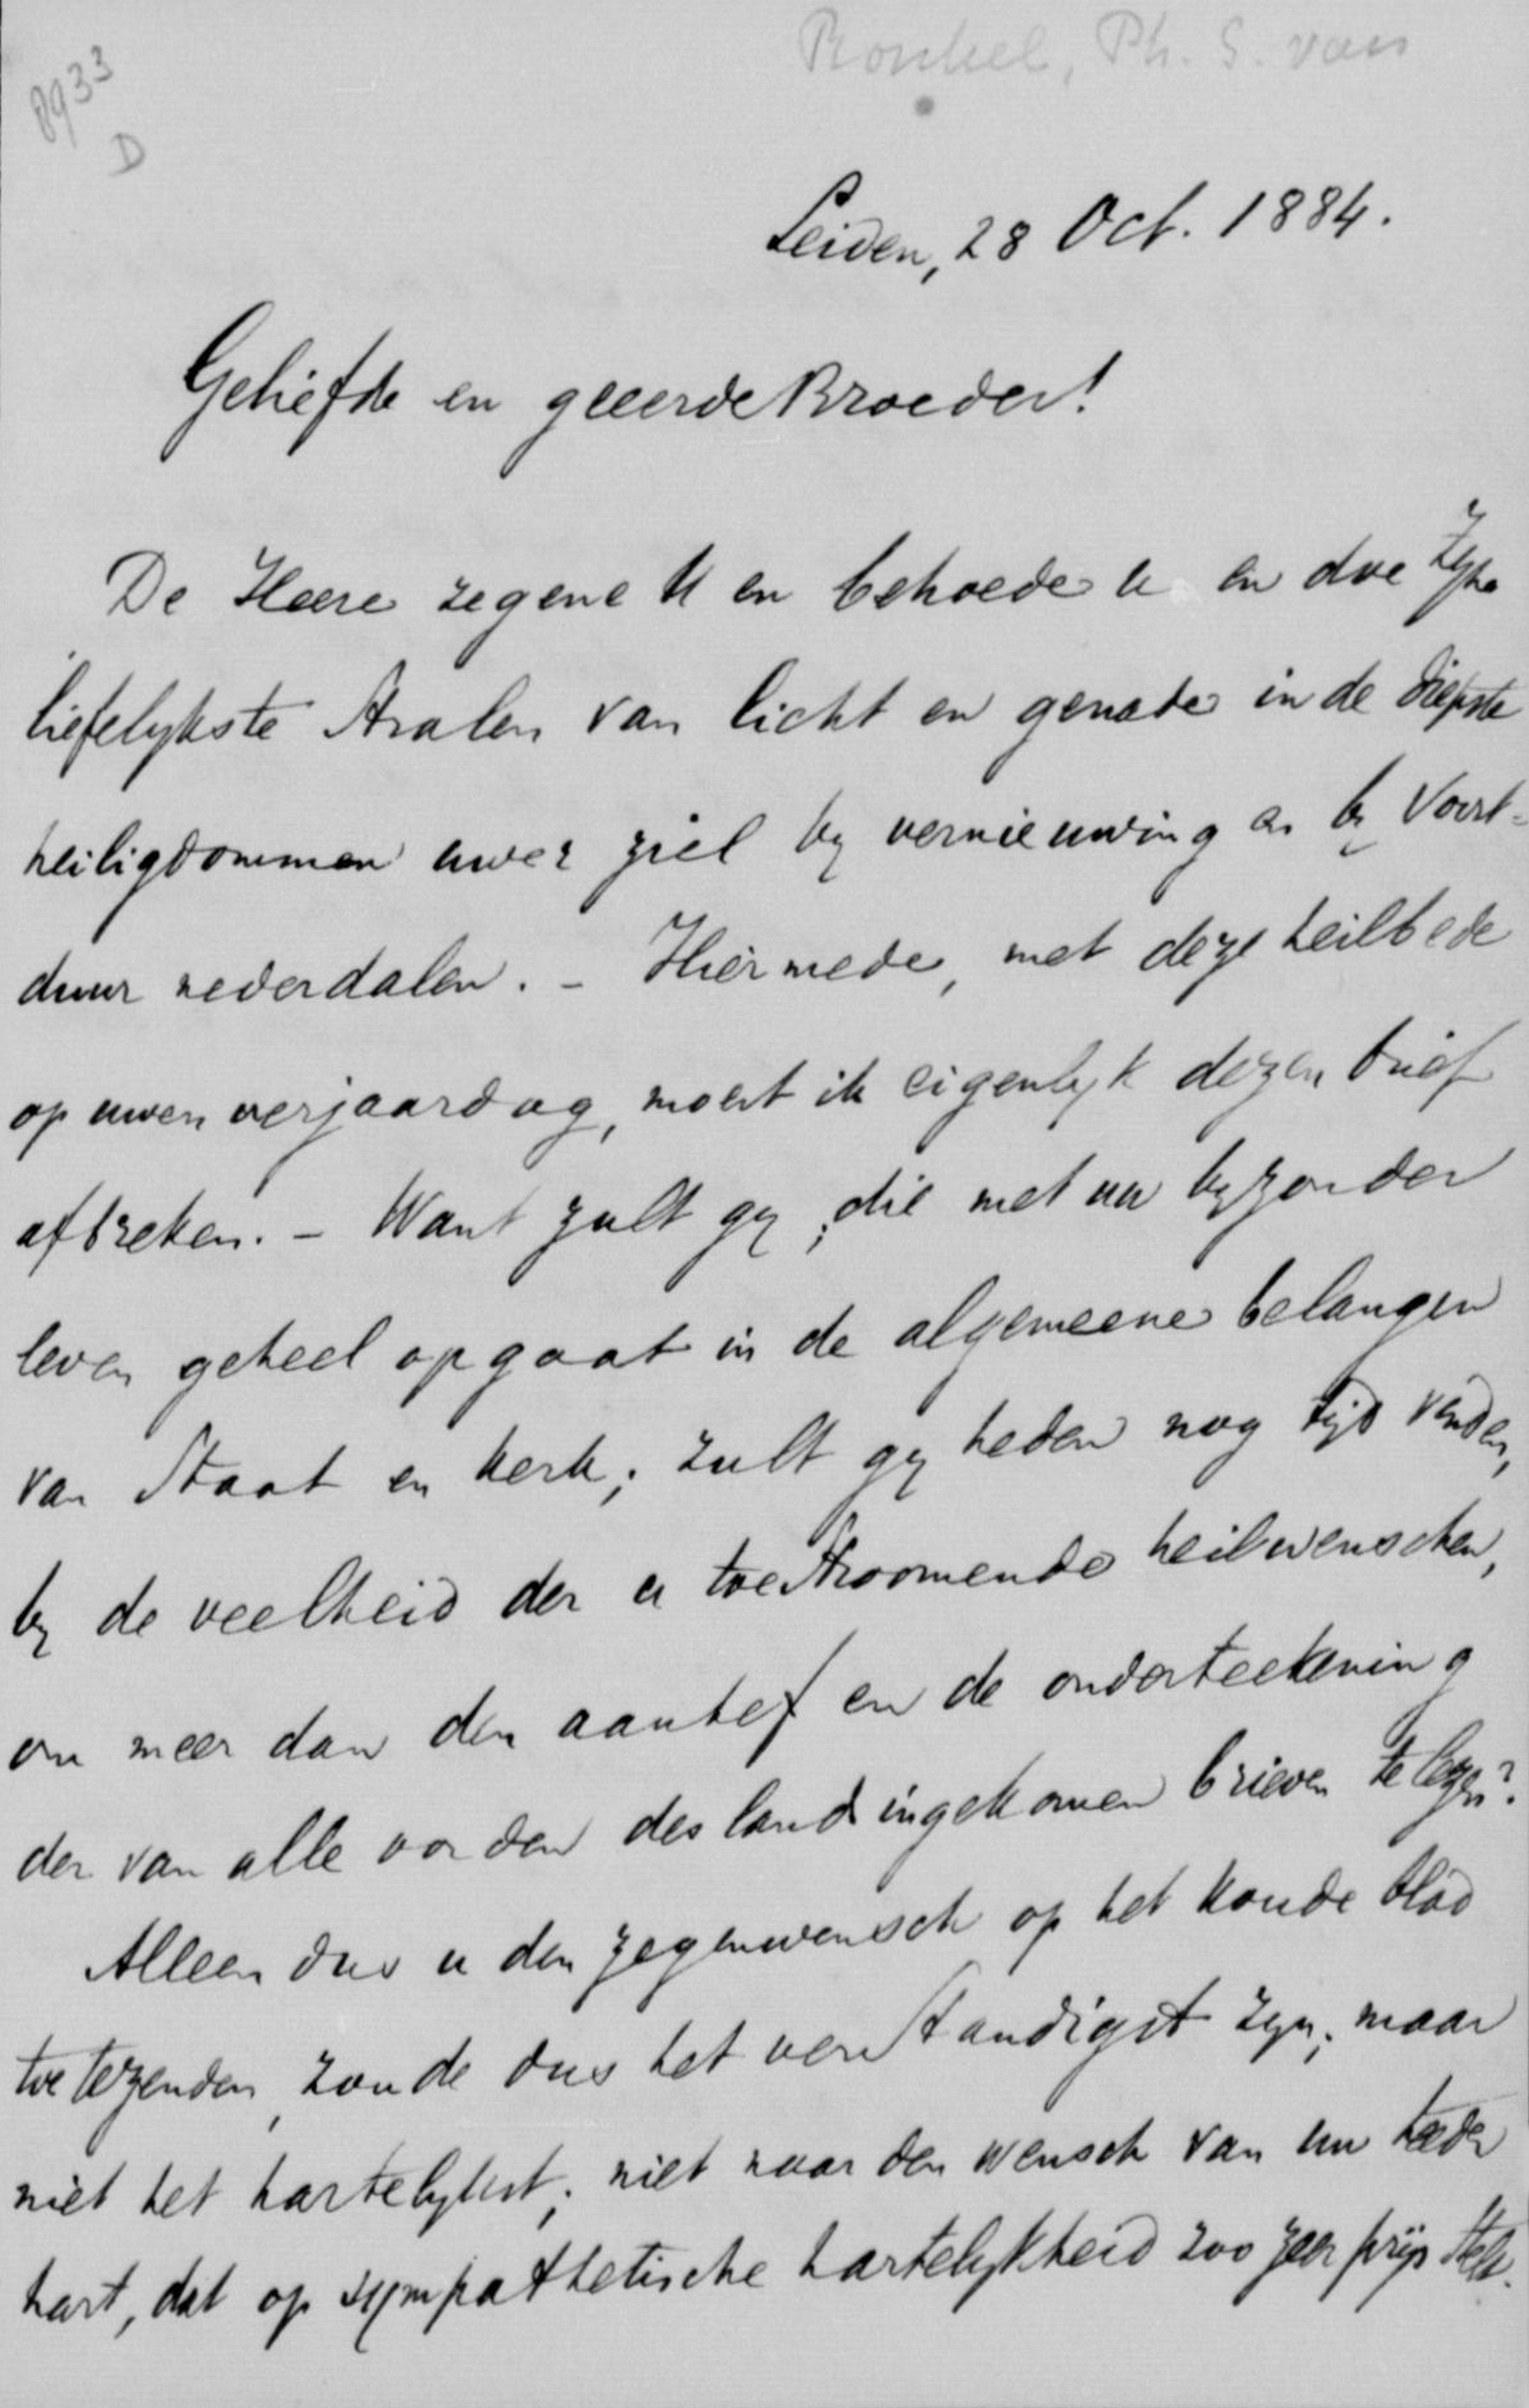 Ronkel, Ph. S. van
8933
D
Leiden, 28 Oct. 1884.
Geliefde en geeerde Broeder!
De Heere zegene U en behoede u en doe Zijne
liefelykste stralen van licht en genade in de diepste
heiligdommen uwer ziel by vernieuwing en by voort-
duur nederdalen. - Hiermede, met deze heilbede
op uwen verjaardag, moest ik eigenlyk dezen brief
afbreken. - Want zult gy, die met uw byzonder
leven geheel opgaat in de algemeene belangen
van Staat en kerk; zult gy heden nog tijd vinden,
by de veelheid der u toestroomende heilwenschen,
om meer dan den aanhef en de onderteekening
der van alle oorden des lands ingekomen brieven te lezen?
Alleen dus u den zegenwensch op het koude blad
toe te zenden, zoude dus het verstandigst zyn; maar
niet het hartelykst; niet naar den wensch van uw teeder
hart, dat op sympathetische hartelykheid zoo zeer prijs stelt.